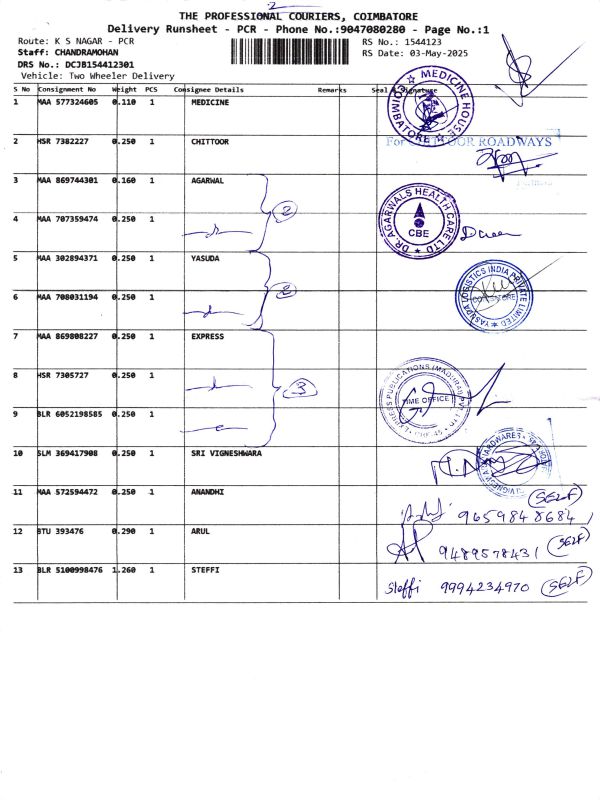 2
THE PROFESSIONAL COURIERS, COIMBATORE
Delivery Runsheet - PCR - Phone No.:9047080280 - Page No.:1
Route: K S NAGAR - PCR
RS No.: 1544123
Staff: CHANDRAMOHAN
RS Date: 03-May-2025
DRS No.: DCJB154412301
Vehicle: Two Wheeler Delivery
S No Consignment No Weight PCS Consignee Details Remarks Seal & Signature
1 MAA 577324605 0.110 1 MEDICINE
MEDICINE HOUSE COIMBATORE
2 HSR 7382227 0.250 1 CHITTOOR
For CHITTOOR ROADWAYS
3 MAA 869744301 0.160 1 AGARWAL
2
DR. AGARWALS HEALTH CARE LTD
CBE
4 MAA 707359474 0.250 1
5 MAA 302894371 0.250 1 YASUDA
2
YASUDA LOGISTICS INDIA PRIVATE LIMITED
COIMBATORE
6 MAA 708031194 0.250 1
7 MAA 869808227 0.250 1 EXPRESS
3
EXPRESS PUBLICATIONS (MADURAI) PVT. LTD
TIME OFFICE
8 HSR 7305727 0.250 1
9 BLR 6052198585 0.250 1
10 SLM 369417908 0.250 1 SRI VIGNESHWARA
11 MAA 572594472 0.250 1 ANANDHI
9659848684 SELF
12 BTU 393476 0.290 1 ARUL
9489578431 SELF
13 BLR 5100998476 1.260 1 STEFFI
Steffi 9994234970 SELF